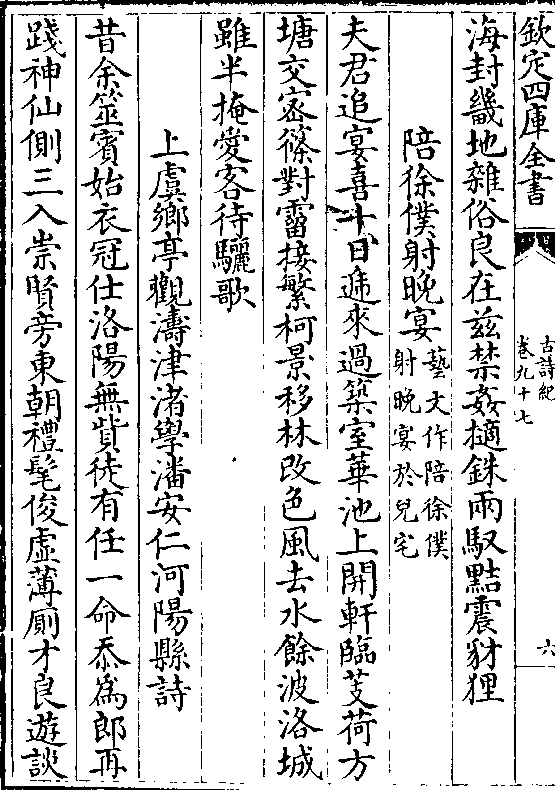 欽定四庫全書
古詩紀
卷九十七
六
海封畿地雜俗良在兹禁姦擿銖兩馭黠震豺狸
陪徐僕射晚宴
藝文作陪徐僕
射晚宴於兒宅
夫君追宴喜十日遞來過築室華池上開軒臨芰荷方
塘交密篠對霤接繁柯景移林改色風去水餘波洛城
雖半掩愛客待驪歌
上虞鄉亭觀濤津渚學潘安仁河陽縣詩
昔余筮賓始衣冠仕洛陽無貲徒有任一命忝為郎再
踐神仙側三入崇賢旁東朝禮髦俊虛薄厠才良遊談